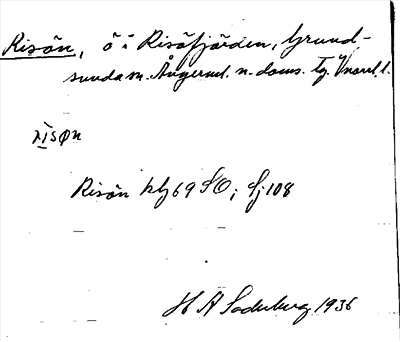 Risön, ö i Risöfjärden, Grund-
sunda sn. Ångerml. n. doms. tg. Vnorrl. l.
rɪsøn
Risön kbf 69 SO; Sj 108
H A Söderberg 1936